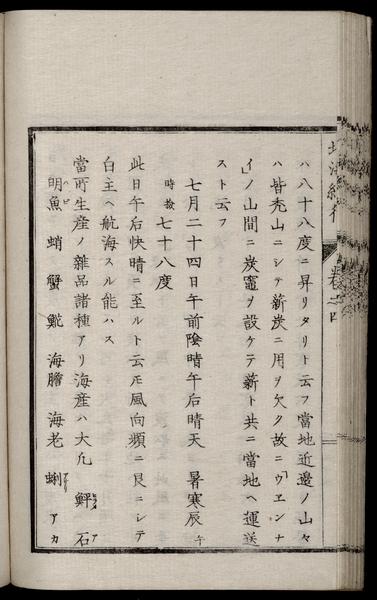 北海紀行 卷之四
ハ八十八度ニ昇リタリト云フ當地近邊ノ山々
ハ皆禿山ニシテ薪炭ニ用ヲ欠ク故ニ「ウエンナ
イ」ノ山間ニ炭竈ヲ設ケテ薪ト共ニ當地ヘ運送
スト云フ
七月二十四日午前陰晴午后晴天 暑寒辰 午
時撿 七十八度
此日午后快晴ニ至ルト云𪜈風向頻ニ艮ニシテ
白主ヘ航海スル能ハス
當所生産ノ雜品諸種アリ海産ハ大凡 鮃 石
明魚 蛸 蟹 鯱 海膽 海老 蜊 アカ